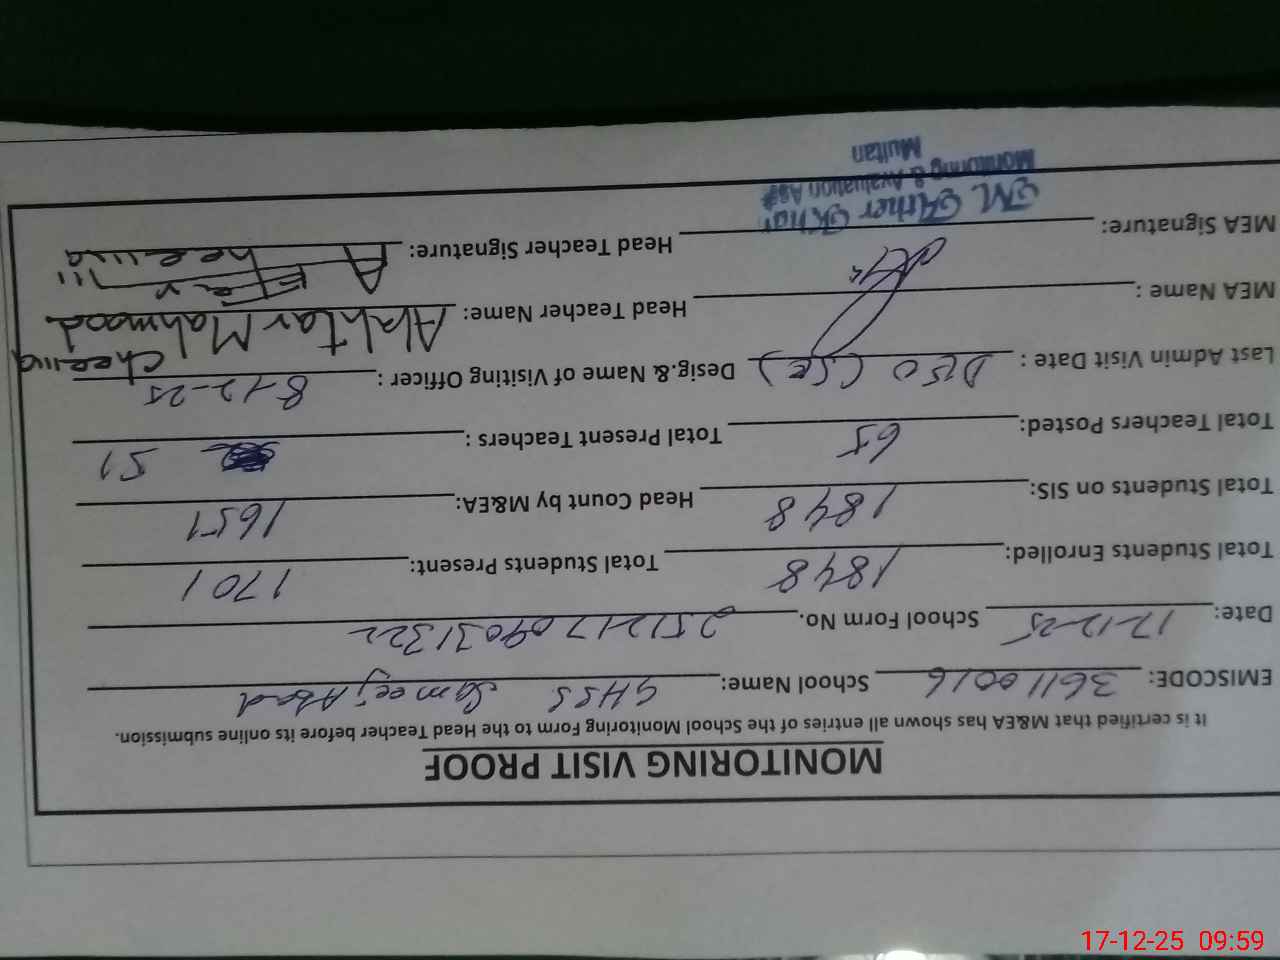 MONITORING VISIT PROOF
It is certified that M&EA has shown all entries of the School Monitoring Form to the Head Teacher before its online submission.
EMISCODE: 36110016 School Name: GHSS Sameeja Abad
Date: 17-12-25 School Form No. 2512170903132
Total Students Enrolled: 1848 Total Students Present: 1701
Total Students on SIS: 1848 Head Count by M&EA: 1651
Total Teachers Posted: 65 Total Present Teachers : 51
Last Admin Visit Date : DEO (SE) Desig.& Name of Visiting Officer : 8-12-25
MEA Name : Head Teacher Name: Akhtar Mahmood Cheema
MEA Signature: Head Teacher Signature: Cheema
M. Ather Khan
Monitoring & Evaluation Ass
Multan
17-12-25 09:59